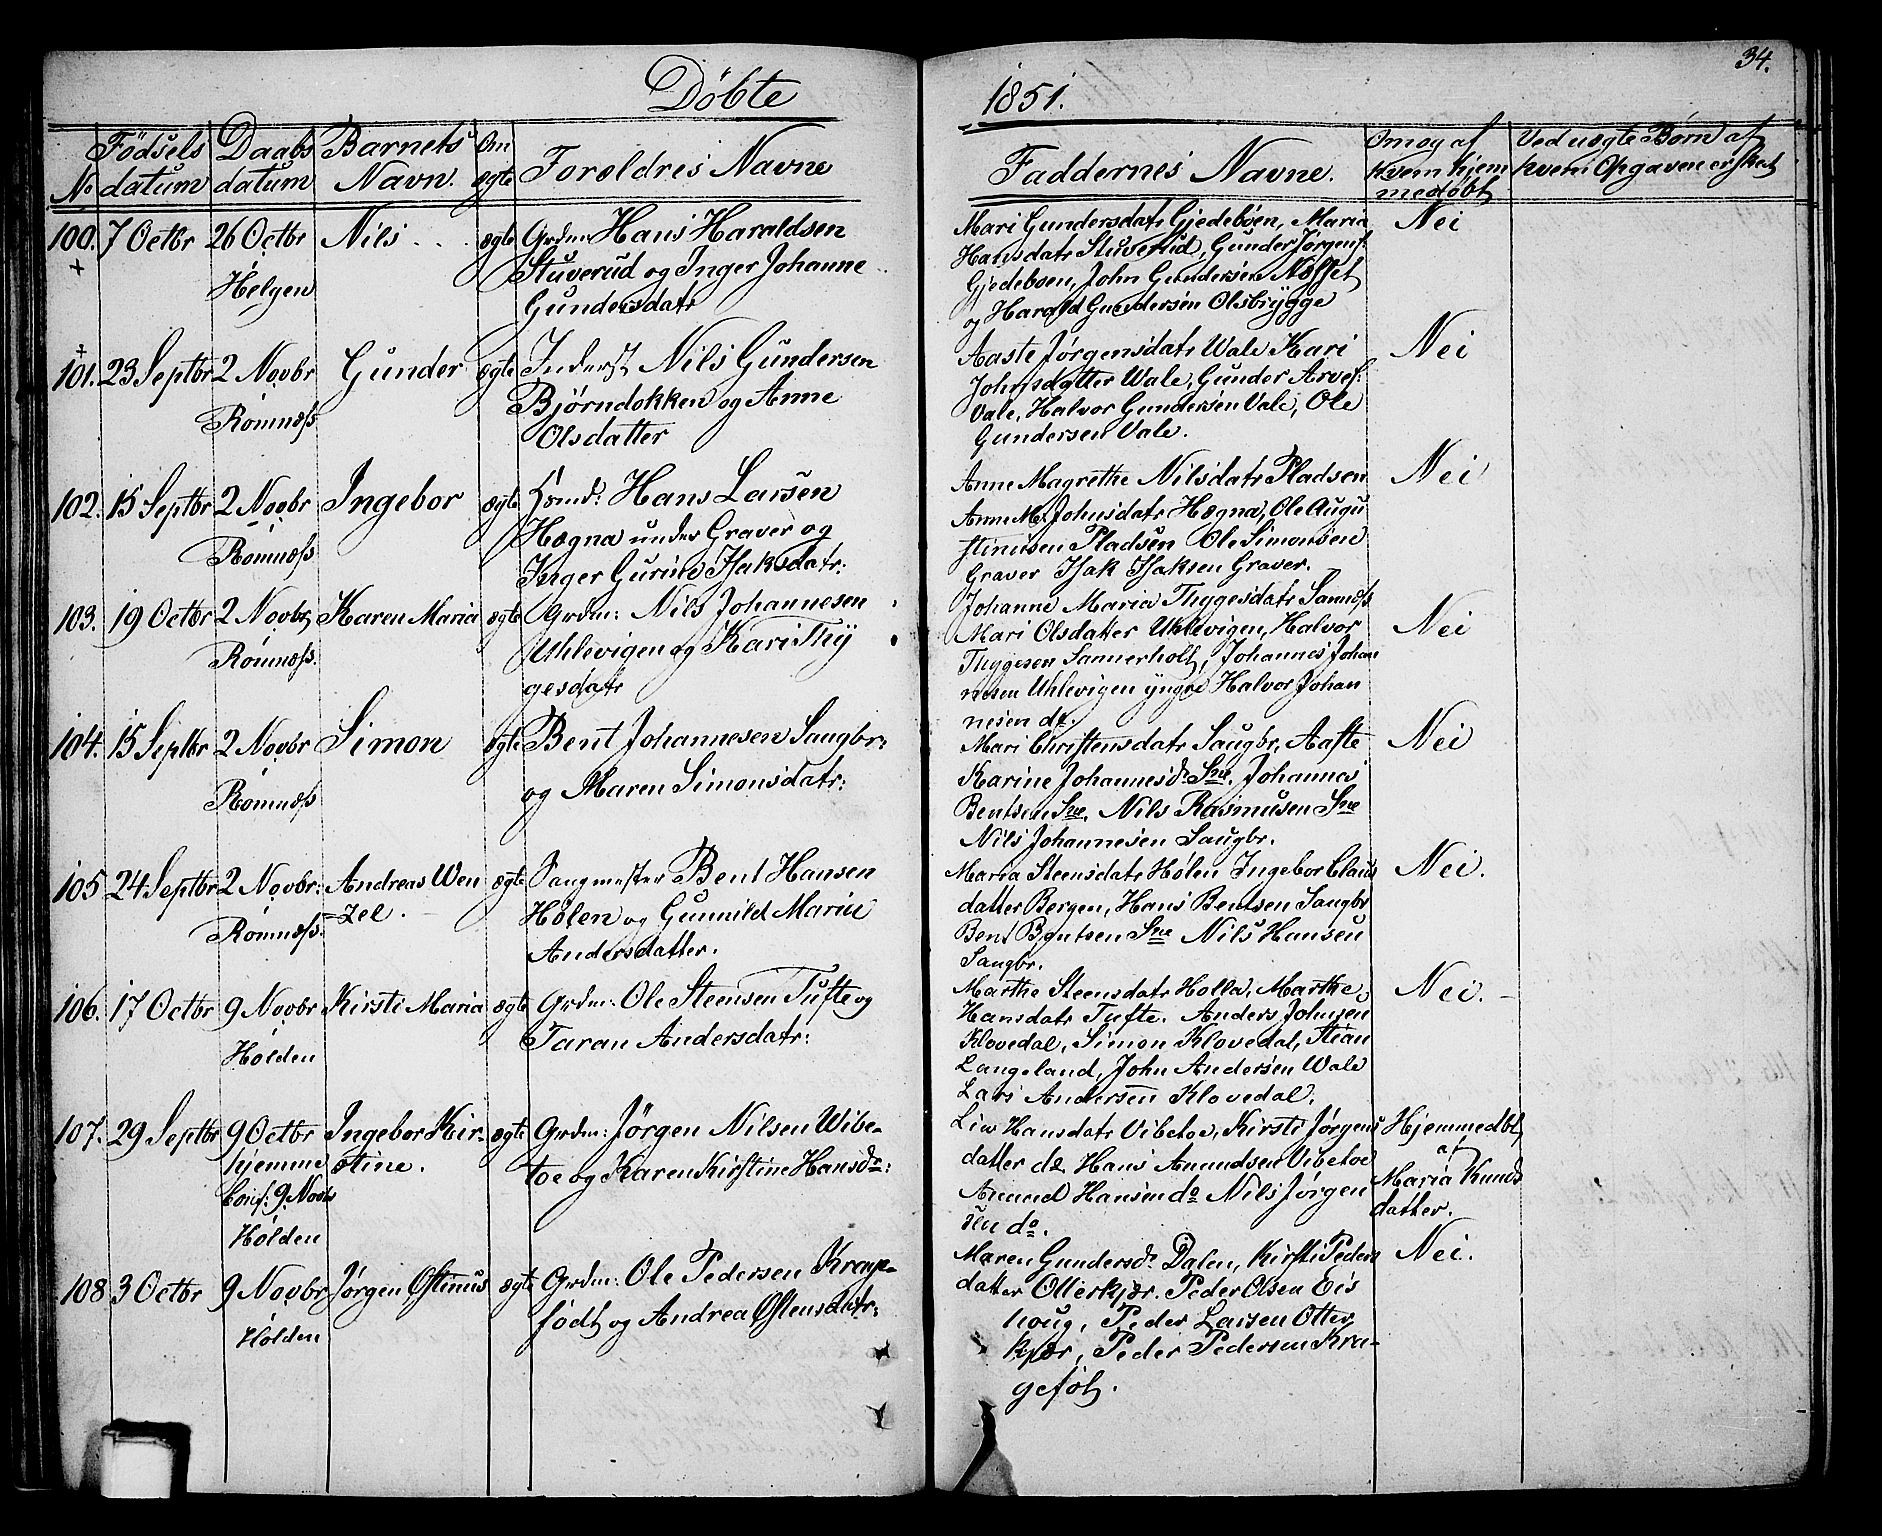 34.
Döbte 1851.
No Födsels datum Daabs datum Barnets Navn. Om ægte Forældres Navne
Faddernes Navne. Om og af hvem hjemmedøbt Ved uægte Børn af hvem Opgaven er skeet
100. 7 Octbr 26 Octbr Nils ægte Grdm: Hans Haraldsen
Helgen Stuverud og Inger Johanne
Gundersdatr
Mari Gundersdatr Gjedebøen, Maria Nei
Hansdatr Stuverud, Gunder Jørgens.
Gjedeboen, John Gundersen Næsset
og Harald Gundersen Olsbrygge
101. 23 Septbr 2 Novbr Gunder ægte Inderst Nils Gundersen
Romnæss Bjørndokken og Anne
Olsdatter
Aaste Jørgensdatr Wale Kari Nei
Johnsdatter Wale, Gunder Arves.
Vale, Halvor Gundersen Vale, Ole
Gundersen Vale.
102. 15 Septbr 2 Novbr Ingebor ægte Huusmd: Hans Larsen
Romnæss Hægna under Graver og
Inger Gurine Isaksdatr:
Anne Magrethe Nilsdatr Pladsen Nei
Anne M. Johnsdatr Hægna, Ole Augu
stinusen Pladsen Ole Simonsen
Graver Isak Isaksen Graver.
103. 19 Octbr 2 Novbr Karen Maria ægte Grdm: Nils Johannesen
Romnæss. Uhlevigen og Kari Thy
gesdatr
Johanne Maria Thygesdatr Sannæss
Mari Olsdatter Uhlevigen, Halvor Nei
Thygesen Sannerholt, Johannes Johan
nesen Uhlevigen yngre Halvor Johan
nesen do.
104. 15 Septbr 2 Novbr Simon ægte Bent Johannesen Saugbr:
Romnæss og Maren Simonsdatr:
Mari Christensdatr Saugbr, Aaste Nei
Karine Johannesd. Sne. Johannes
Bentsen Sne. Nils Rasmusen Sne
Nils Johannesen Saugbr.
105 24 Septbr 2 Novbr: Andreas Wen ægte Saugmester Bent Hansen
Romnæss. =zel. Holen og Gunnild Marie
Andersdatter.
Maria Steensdatr Holen Ingebor Claus Nei.
datter Bergen, Hans Bentsen Saugbr
Bent Bentsen Sne Nils Hansen
Saugbr.
106. 17 Octbr 9 Novbr Kirsti Maria ægte Grdm: Ole Steensen Tufte og
Holden Taran Andersdatr:
Marthe Steensdatr Holla, Marthe Nei.
Hansdatr Tufte. Anders Johnsen
Klovedal, Simon Klovedal, Stian
Langeland, John Andersen Wale
Lars Andersen Klovedal.
107. 29 Septbr 9 Octbr Ingebor Kir- ægte Grdm: Jörgen Nilsen Wibe-
hjemme stine. toe og Karen Kirstine Hansdr:
Conf: 9 Novbr
Holden
Lies Hansdatr Vibetoe, Kirsti Jørgens Hjemmedbt
datter do. Hans Amundsen Vibetoe af
Amund Hansen do Nils Jörgen Maria Knuds
sen do. datter.
108 3 Octbr 9 Novbr Jørgen Østinus ægte Grdm: Ole Pedersen Krage-
Holden födt og Andrea Østensdatr:
Maren Gundersdr Dalen, Kirsti Peders Nei.
datter Otterkjær. Peder Olsen Eis
houg, Peder Larsen Otter
kjær, Peder Pedersen Kra-
geföt.